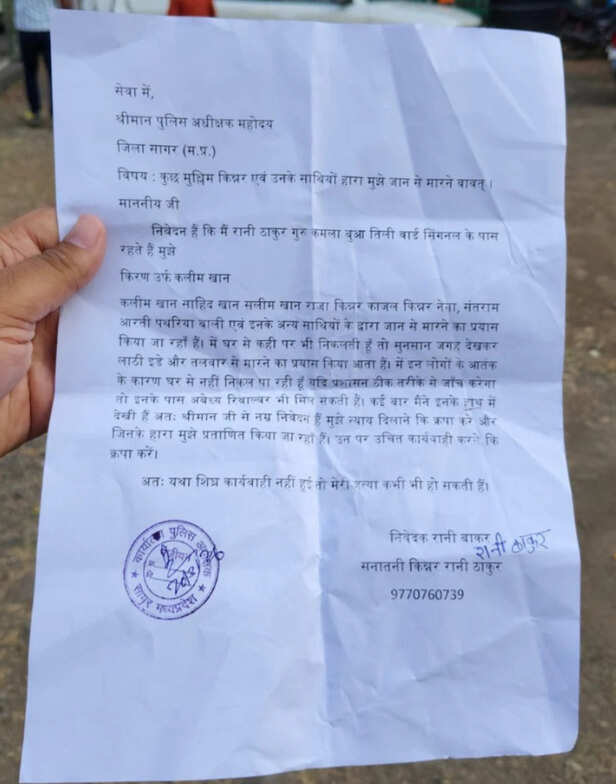 सेवा में,
श्रीमान पुलिस अधीक्षक महोदय
जिला सागर (म.प्र.)
विषय : कुछ मुश्लिम किन्नर एवं उनके साथियों द्वारा मुझे जान से मारने वावत् ।
माननीय जी
निवेदन हैं कि मैं रानी ठाकुर गुरु कमला बुआ तिली वार्ड सिंगनल के पास
रहते हैं मुझे
किरण उर्फ कलीम खान
कलीम खान साहिद खान सलीम खान राजा किन्नर काजल किन्नर नेवा, संतराम
आरती पथरिया वाली एवं इनके अन्य साथियों के द्वारा जान से मारने का प्रयास
किया जा रहाँ हैं। में घर से कही पर भी निकलती हूँ तो सुनसान जगह देखकर
लाठी डंडे और तलवार से मारने का प्रयास किया आता हैं। में इन लोगों के आतंक
के कारण घर से नहीं निकल पा रही हूँ यदि प्रशासन ठीक तरीके से जाँच करेगा
तो इनके पास अबेध्य रिवाल्वर भी मिल सकती हैं। कई बार मैंने इनके हाथ में
देखी हैं अतः श्रीमान जी से नम्र निवेदन हैं मुझे न्याय दिलाने कि क्रपा करे और
जिनके द्वारा मुझे प्रताणित किया जा रहाँ हैं। उन पर उचित कार्यवाही करने कि
क्रपा करें।
अतः यथा शिघ्र कार्यवाही नहीं हुई तो मेरी हत्या कभी भी हो सकती हैं।
निवेदक रानी बाकर
रानी ठाकुर
सनातनी किन्नर रानी ठाकुर
9770760739
कार्यालय पुलिस अधीक्षक
सागर मध्यप्रदेश